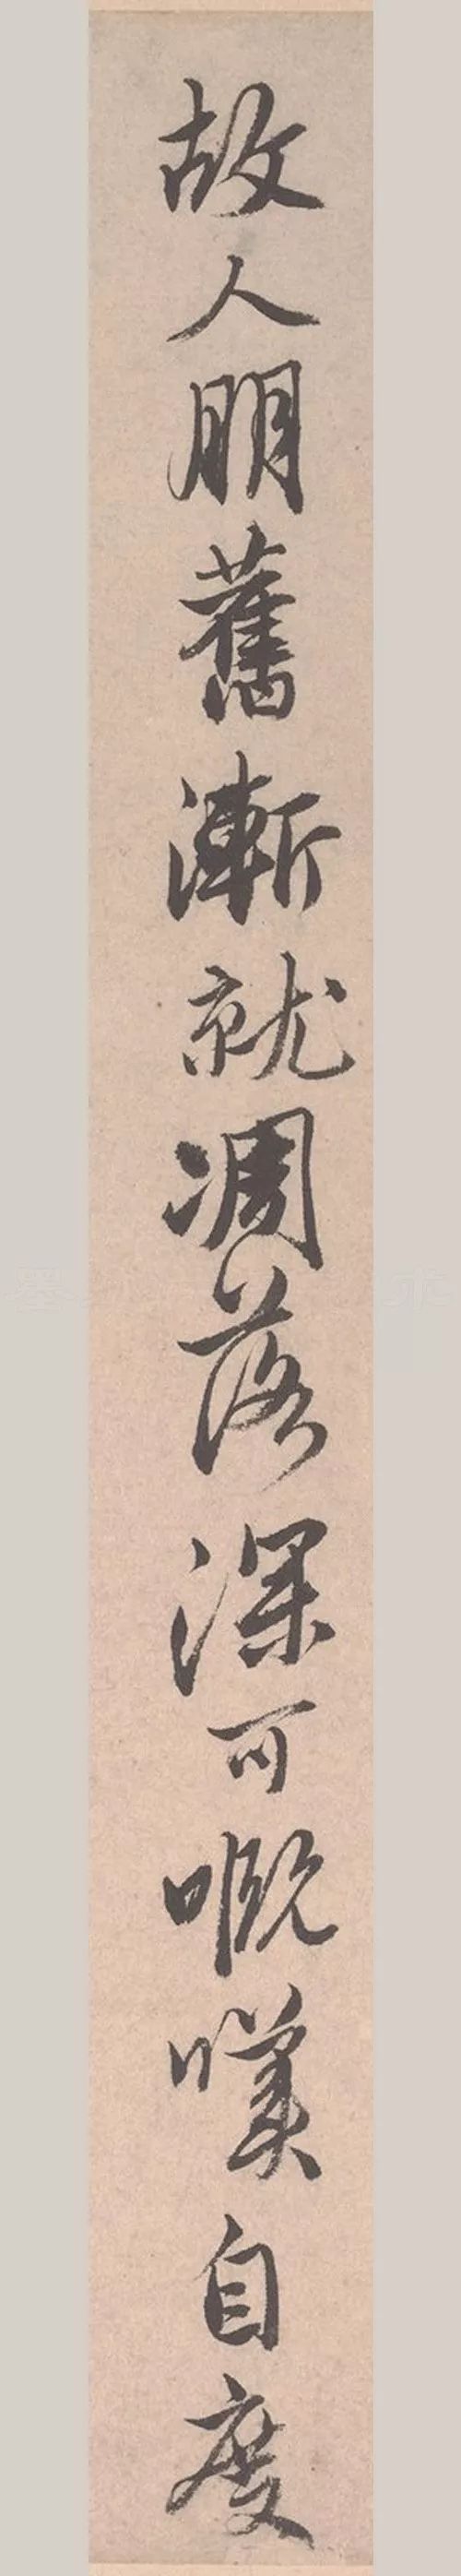 故人朋舊漸就凋落深可嘅嘆自度